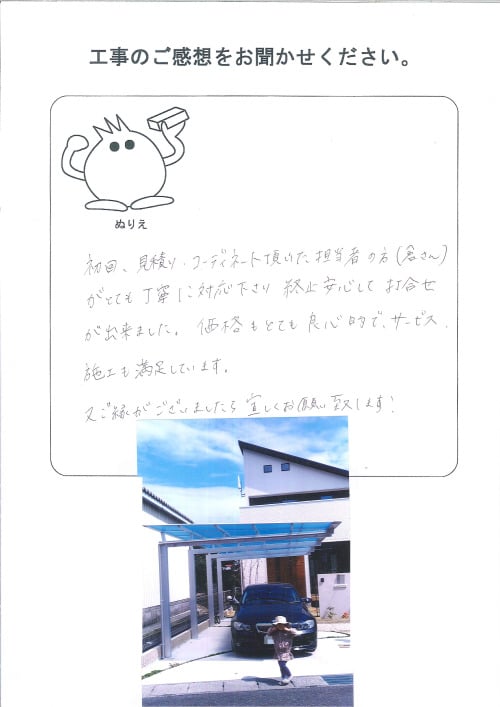 工事のご感想をお聞かせください。
ぬりえ
初回、見積り・コーディネート頂いた担当者の方(倉さん)
がとても丁寧に対応下さり 終止安心して打合せ
が出来ました。価格もとても良心的で、サービス、
施工も満足しています。
又ご縁がございましたら宜しくお願い致します!